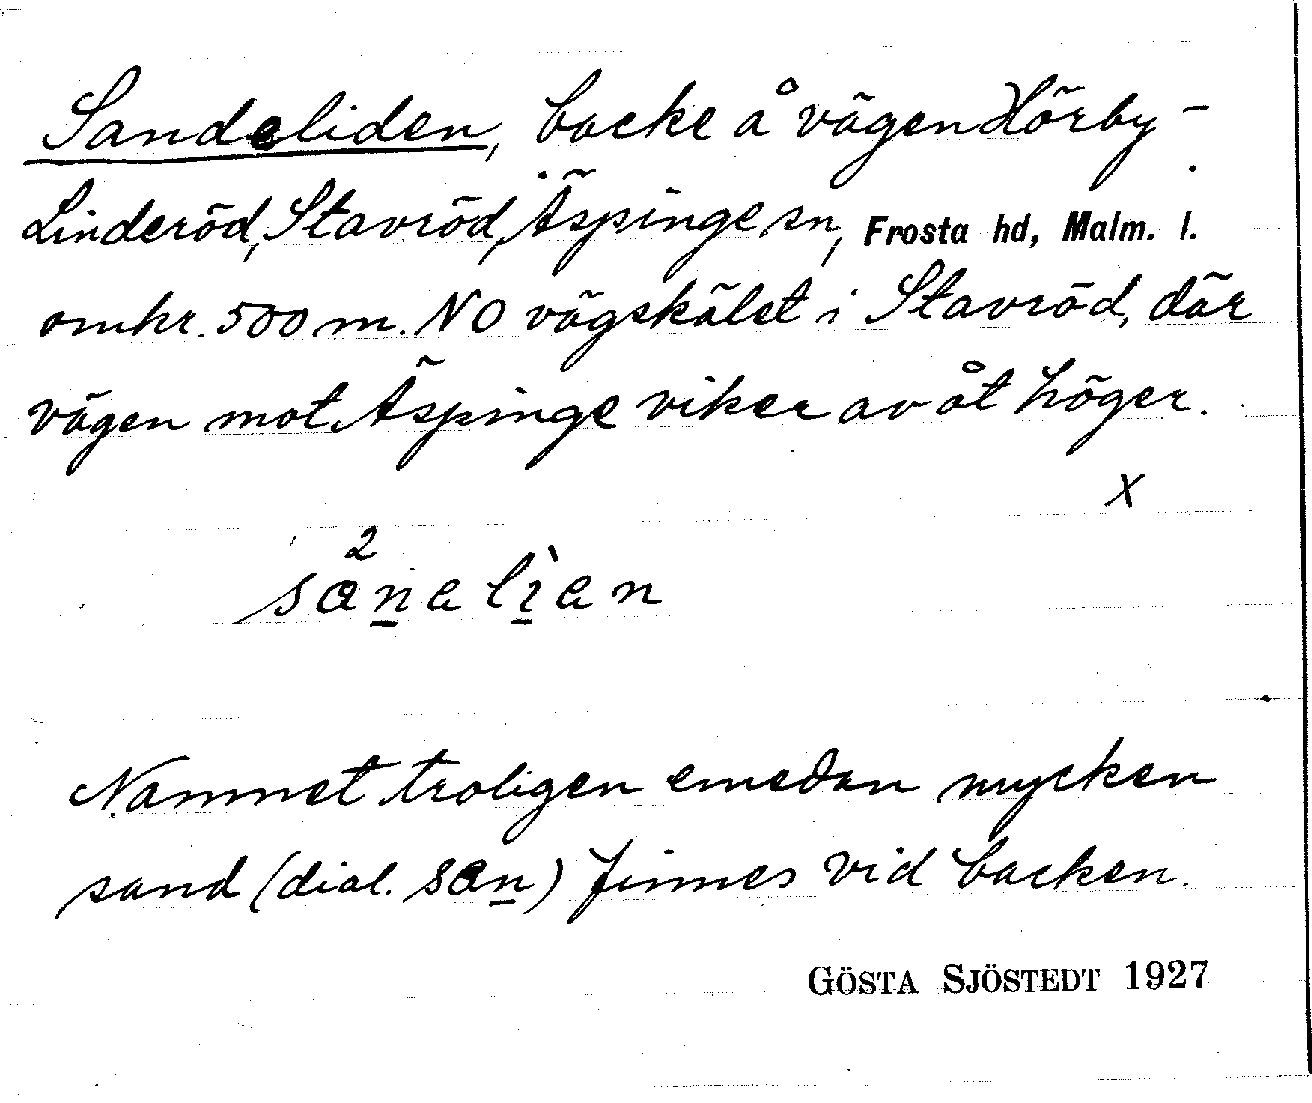 Sandeliden, backe å vägen Hörby-
Linderöd, Stavröd, Äspinge sn, Frosta hd, Malm. l.
omkr. 500 m. NO vägskälet i Stavröd, där
vägen mot Äspinge viker av åt höger.
x
2
sa̱ṉa lì̱an
Namnet troligen emedan mycken
sand (dial. saṉ) finnes vid backen.
GÖSTA SJÖSTEDT 1927